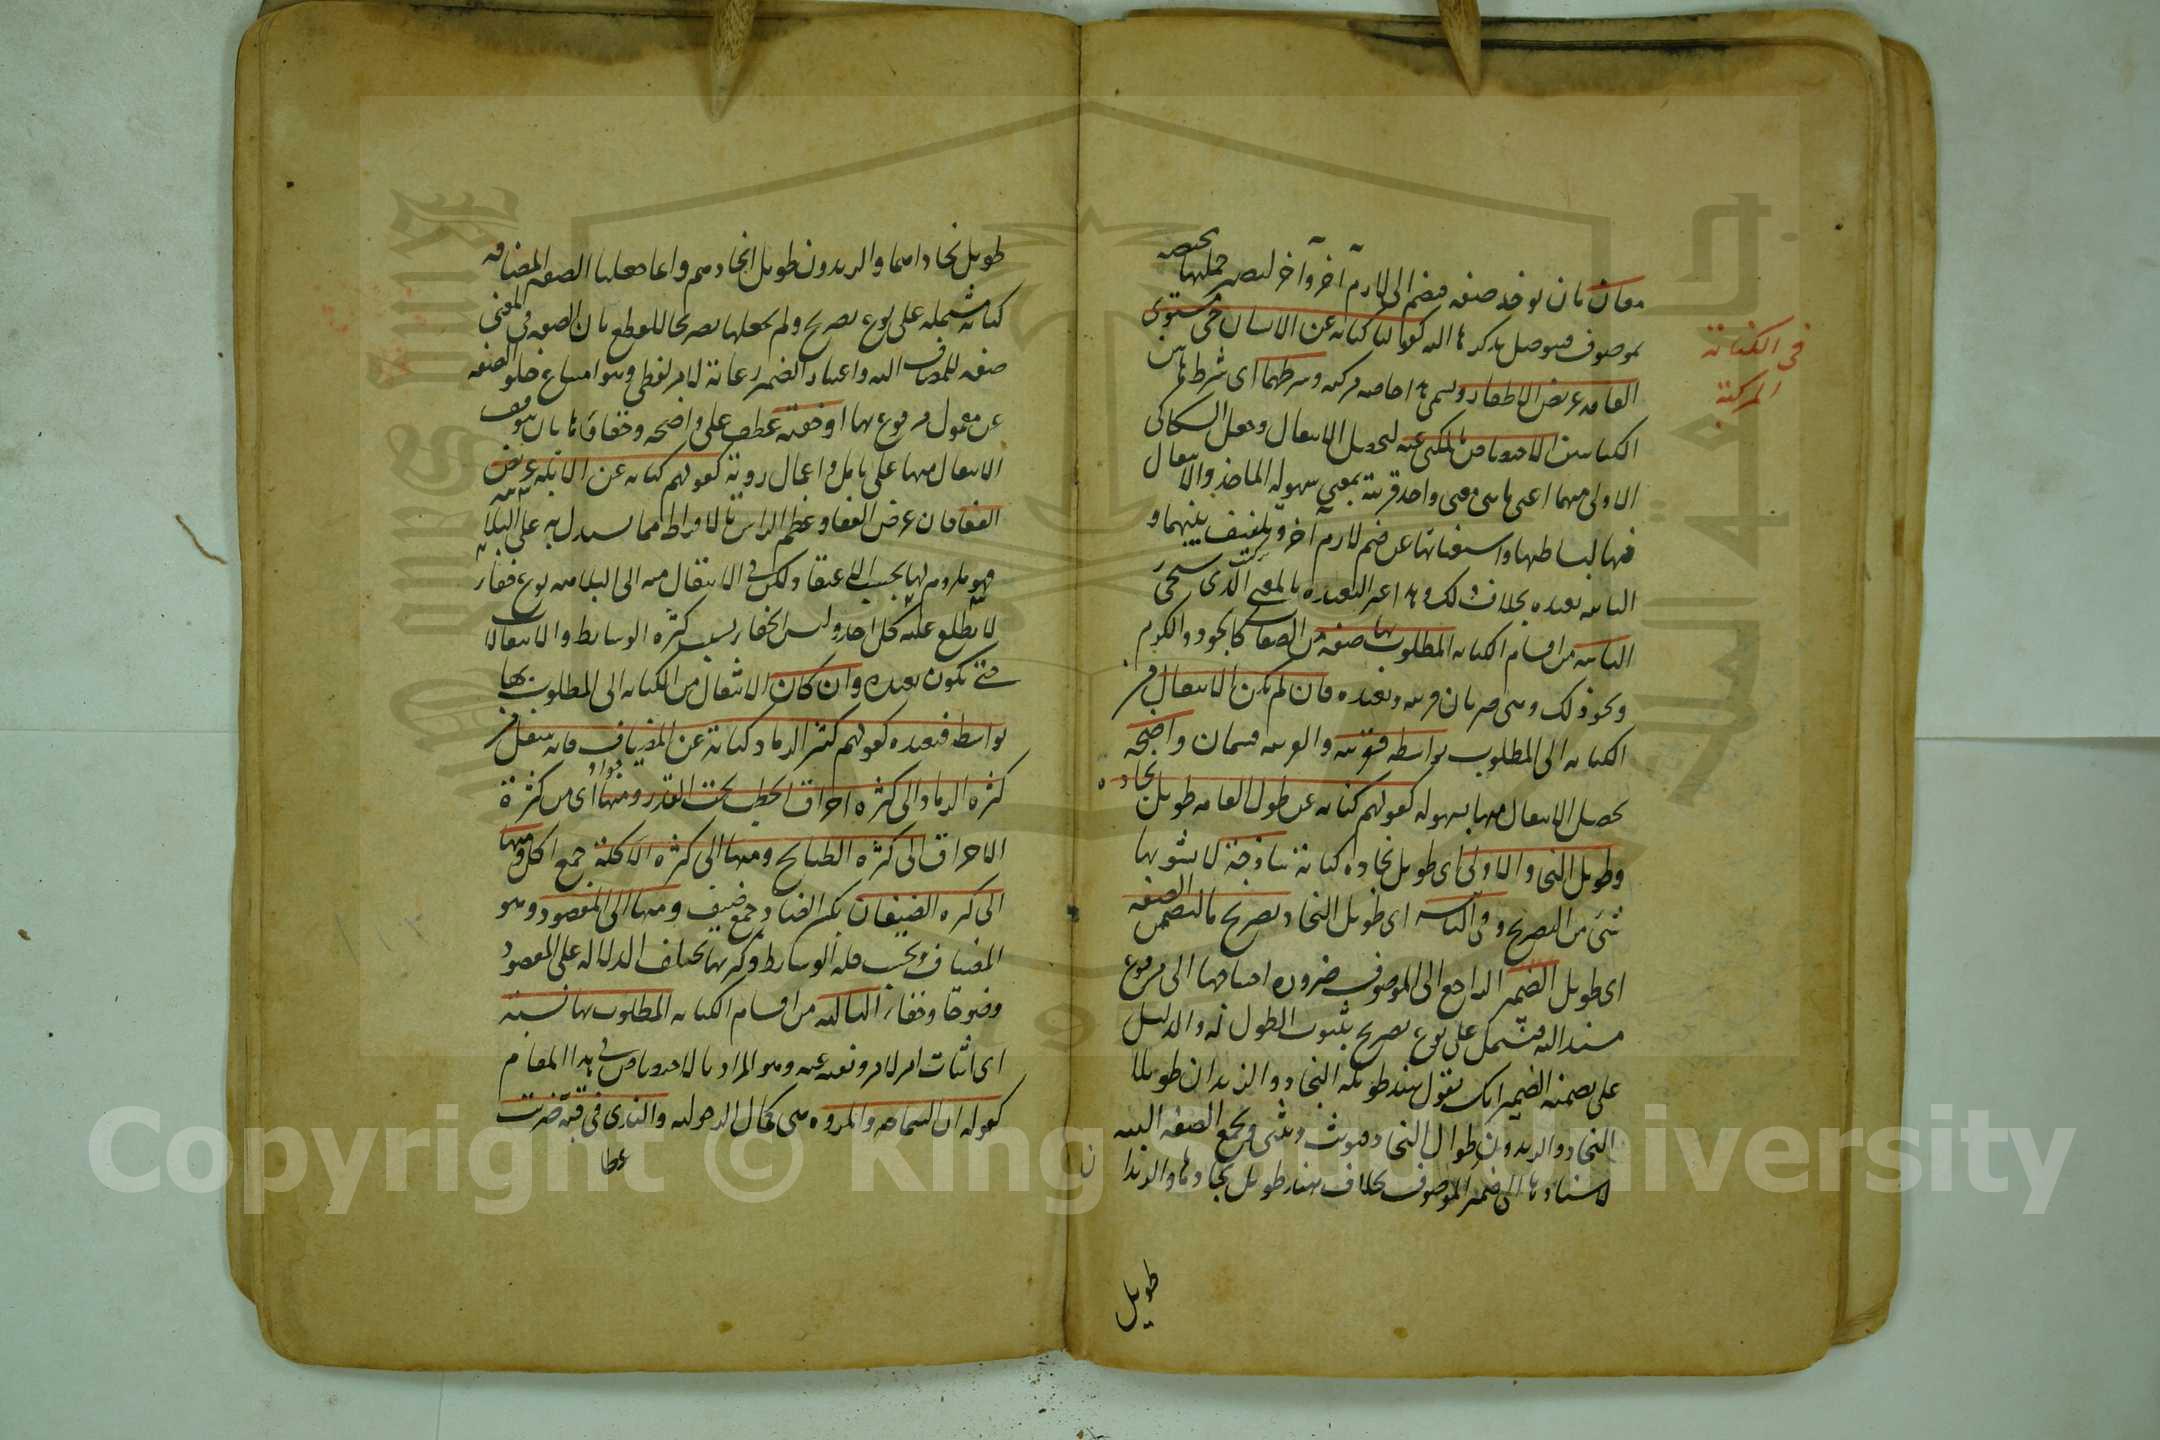 معان بان يوخذ صفة فتضم الى لازم آخر وآخر لتصير جملتها مختصة
بموصوف فيتوصل بذكرها اليه كقولنا كناية عن الانسان حى مستوى
القامة عريض الاظفار ويسمى هذا خاصة مركبة وشرطهما اى شرط هاتين
الكنايتين الاختصاص بالمكنى عنه ليحصل الانتقال وجعل السكاكى
الاولى منهما اعنى ما هى معنى واحد قريبة بمعنى سهولة الماخذ والانتقال
فيها لبساطتها واستغنائها عن ضم لازم آخر وتلفيف بينهما و
الثانية بعيدة بخلاف ذلك وهذا غير البعيدة بالمعنى الذى سيجئ
الثانية من اقسام الكناية المطلوب بها صفة من الصفات كالجود والكرم
ونحو ذلك وهى ضربان قريبة وبعيدة فان لم يكن الانتقال من
الكناية الى المطلوب بواسطة فقريبة والقريبة قسمان واضحة
يحصل الانتقال منها بسهولة كقولهم كناية عن طول القامة طويل نجاده
وطويل النجاد والاولى اى طويل نجاده كناية ساذجة لا يشوبها
شئ من التصريح وفى الثانية اى طويل النجاد تصريح ما لتضمن الصفة
اى طويل الضمير الراجع الى الموصوف ضرورة احتياجها الى مرفوع
مسند اليه فيشتمل على نوع تصريح بثبوت الطول له والدليل
على تضمنه الضمير انك تقول هند طويلة النجاد والزيدان طويلا
النجاد والزيدون طوال النجاد فتؤنث وتثنى وتجمع الصفة البتة
لاسنادها الى ضمير الموصوف بخلاف هند طويل نجادها والزيدان
طويل
فى الكناية
المركبة
طويل نجادهما والزيدون طويل نجادهم وانما جعلنا الصفة المضافة
كناية مشتملة على نوع تصريح ولم نجعلها تصريحا للقطع بان الصفة فى المعنى
صفة للمضاف اليه واعتبار الضمير رعاية لامر لفظى وهو امتناع خلو الصفة
عن معمول مرفوع بها او خفية عطف على واضحة وخفاؤها بان يتوقف
الانتقال منها على تامل واعمال روية كقولهم كناية عن الابله عريض
القفا فان عرض القفا وعظم الراس بالافراط مما يستدل به على البلاهة
فهو ملزوم لها بحسب الاعتقاد لكن فى الانتقال منه الى البلاهة نوع خفاء
لا يطلع عليه كل احد وليس الخفاء بسبب كثرة الوسايط والانتقالات
حتى تكون بعيدة وان كان الانتقال من الكناية الى المطلوب بها
بواسطة فبعيدة كقولهم كثير الرماد كناية عن المضياف فانه ينتقل من
كثرة الرماد الى كثرة احراق الحطب تحت القدور ومنها اى من كثرة
الاحراق الى كثرة الطبايخ ومنها الى كثرة الاكلة جمع آكل ومنها
الى كثرة الضيفان بكسر الضاد جمع ضيف ومنها الى المقصود وهو
المضياف وبحسب قلة الوسايط وكثرتها تختلف الدلالة على المقصود
وضوحا وخفاء الثالثة من اقسام الكناية المطلوب بها نسبة
اى اثبات امر لامر او نفيه عنه وهو المراد بالاختصاص فى هذا المقام
كقوله ان السماحة والمروة هى كمال الرجولية والندى فى قبة ضربت
Copyright © King Saud University